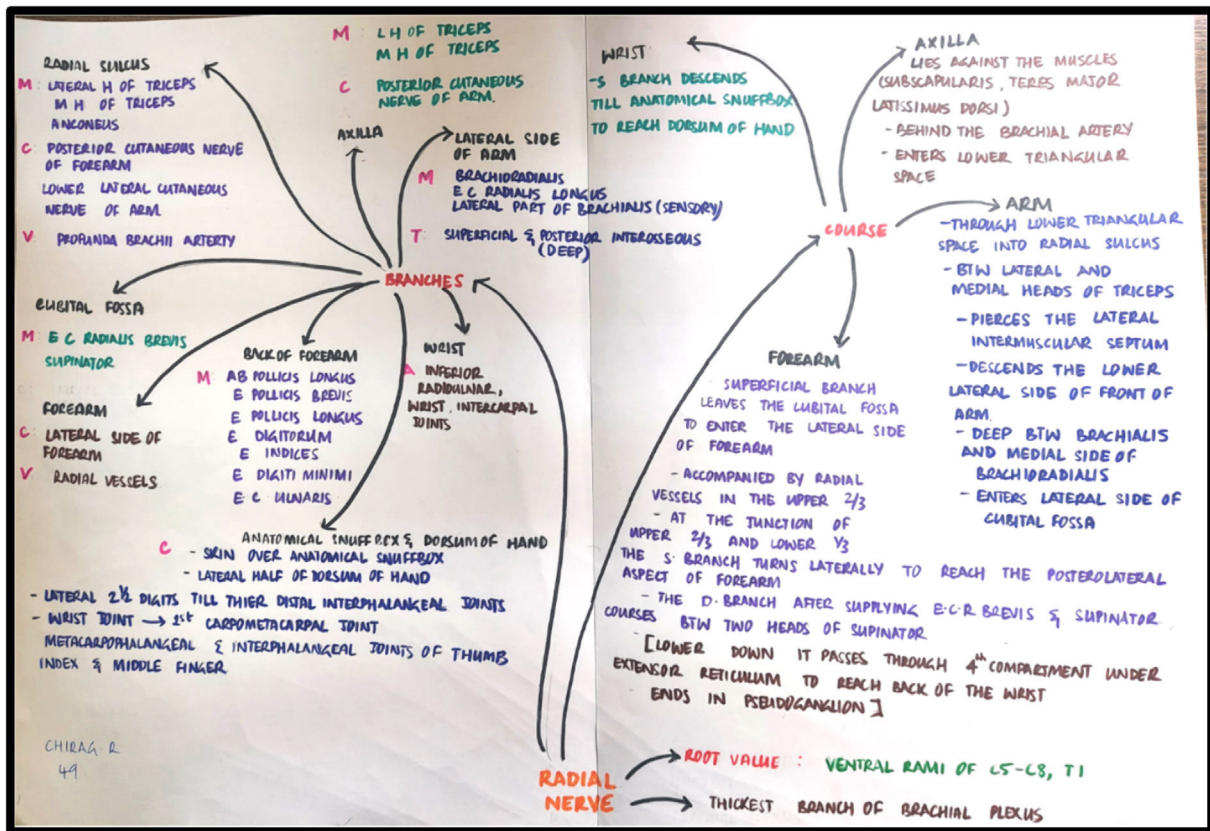 M: LH OF TRICEPS
M H OF TRICEPS
C POSTERIOR CUTANEOUS
NERVE OF ARM.
RADIAL SULCUS
M: LATERAL H OF TRICEPS
M H OF TRICEPS
ANCONEUS
C POSTERIOR CUTANEOUS NERVE
OF FOREARM
LOWER LATERAL CUTANEOUS
NERVE OF ARM.
V: PROFUNDA BRACHII ARTERTY
AXILLA
LATERAL SIDE
OF ARM
M BRACHIORADIALIS
E C RADIALIS LONGUS
LATERAL PART OF BRACHIALIS (SENSORY)
T: SUPERFICIAL & POSTERIOR INTEROSSEOUS
(DEEP)
BRANCHES
CUBITAL FOSSA
M: E C RADIALIS BREVIS
SUPINATOR
FOREARM
C LATERAL SIDE OF
FOREARM
V RADIAL VESSELS
BACK OF FOREARM
M: AB POLLICIS LONGUS
E POLLICIS BREVIS
E POLLICIS LONGUS
E DIGITORUM
E INDICES
E DIGITI MINIMI
E C ULNARIS
WRIST
A INFERIOR
RADIOULNAR,
WRIST, INTERCARPAL
JOINTS
ANATOMICAL SNUFF BOX & DORSUM OF HAND
C - SKIN OVER ANATOMICAL SNUFFBOX
- LATERAL HALF OF DORSUM OF HAND
- LATERAL 2½ DIGITS TILL THIER DISTAL INTERPHALANGEAL JOINTS
- WRIST JOINT → 1st CARPOMETACARPAL JOINT
METACARPOPHALANGEAL & INTERPHALANGEAL JOINTS OF THUMB
INDEX & MIDDLE FINGER
CHIRAG. R
49
WRIST
-S BRANCH DESCENDS
TILL ANATOMICAL SNUFFBOX
TO REACH DORSUM OF HAND
AXILLA
LIES AGAINST THE MUSCLES
(SUBSCAPULARIS, TERES MAJOR
LATISSIMUS DORSI)
- BEHIND THE BRACHIAL ARTERY
- ENTERS LOWER TRIANGULAR
SPACE
COURSE
ARM
-THROUGH LOWER TRIANGULAR
SPACE INTO RADIAL SULCUS
- BTW LATERAL AND
MEDIAL HEADS OF TRICEPS
- PIERCES THE LATERAL
INTERMUSCULAR SEPTUM
-DESCENDS THE LOWER
LATERAL SIDE OF FRONT OF
ARM.
- DEEP BTW BRACHIALIS
AND MEDIAL SIDE OF
BRACHIORADIALIS
- ENTERS LATERAL SIDE OF
CUBITAL FOSSA
FOREARM
SUPERFICIAL BRANCH
LEAVES THE CUBITAL FOSSA
TO ENTER THE LATERAL SIDE
OF FOREARM
- ACCOMPANIED BY RADIAL
VESSELS IN THE UPPER 2/3
- AT THE JUNCTION OF
UPPER 2/3 AND LOWER 1/3
THE S. BRANCH TURNS LATERALLY TO REACH THE POSTEROLATERAL
ASPECT OF FOREARM
- THE D. BRANCH AFTER SUPPLYING E.C.R BREVIS & SUPINATOR
COURSES BTW TWO HEADS OF SUPINATOR
[LOWER DOWN IT PASSES THROUGH 4th COMPARTMENT UNDER
EXTENSOR RETICULUM TO REACH BACK OF THE WRIST
ENDS IN PSEUDOGANGLION]
RADIAL
NERVE
ROOT VALUE : VENTRAL RAMI OF C5-C8, T1
THICKEST BRANCH OF BRACHIAL PLEXUS